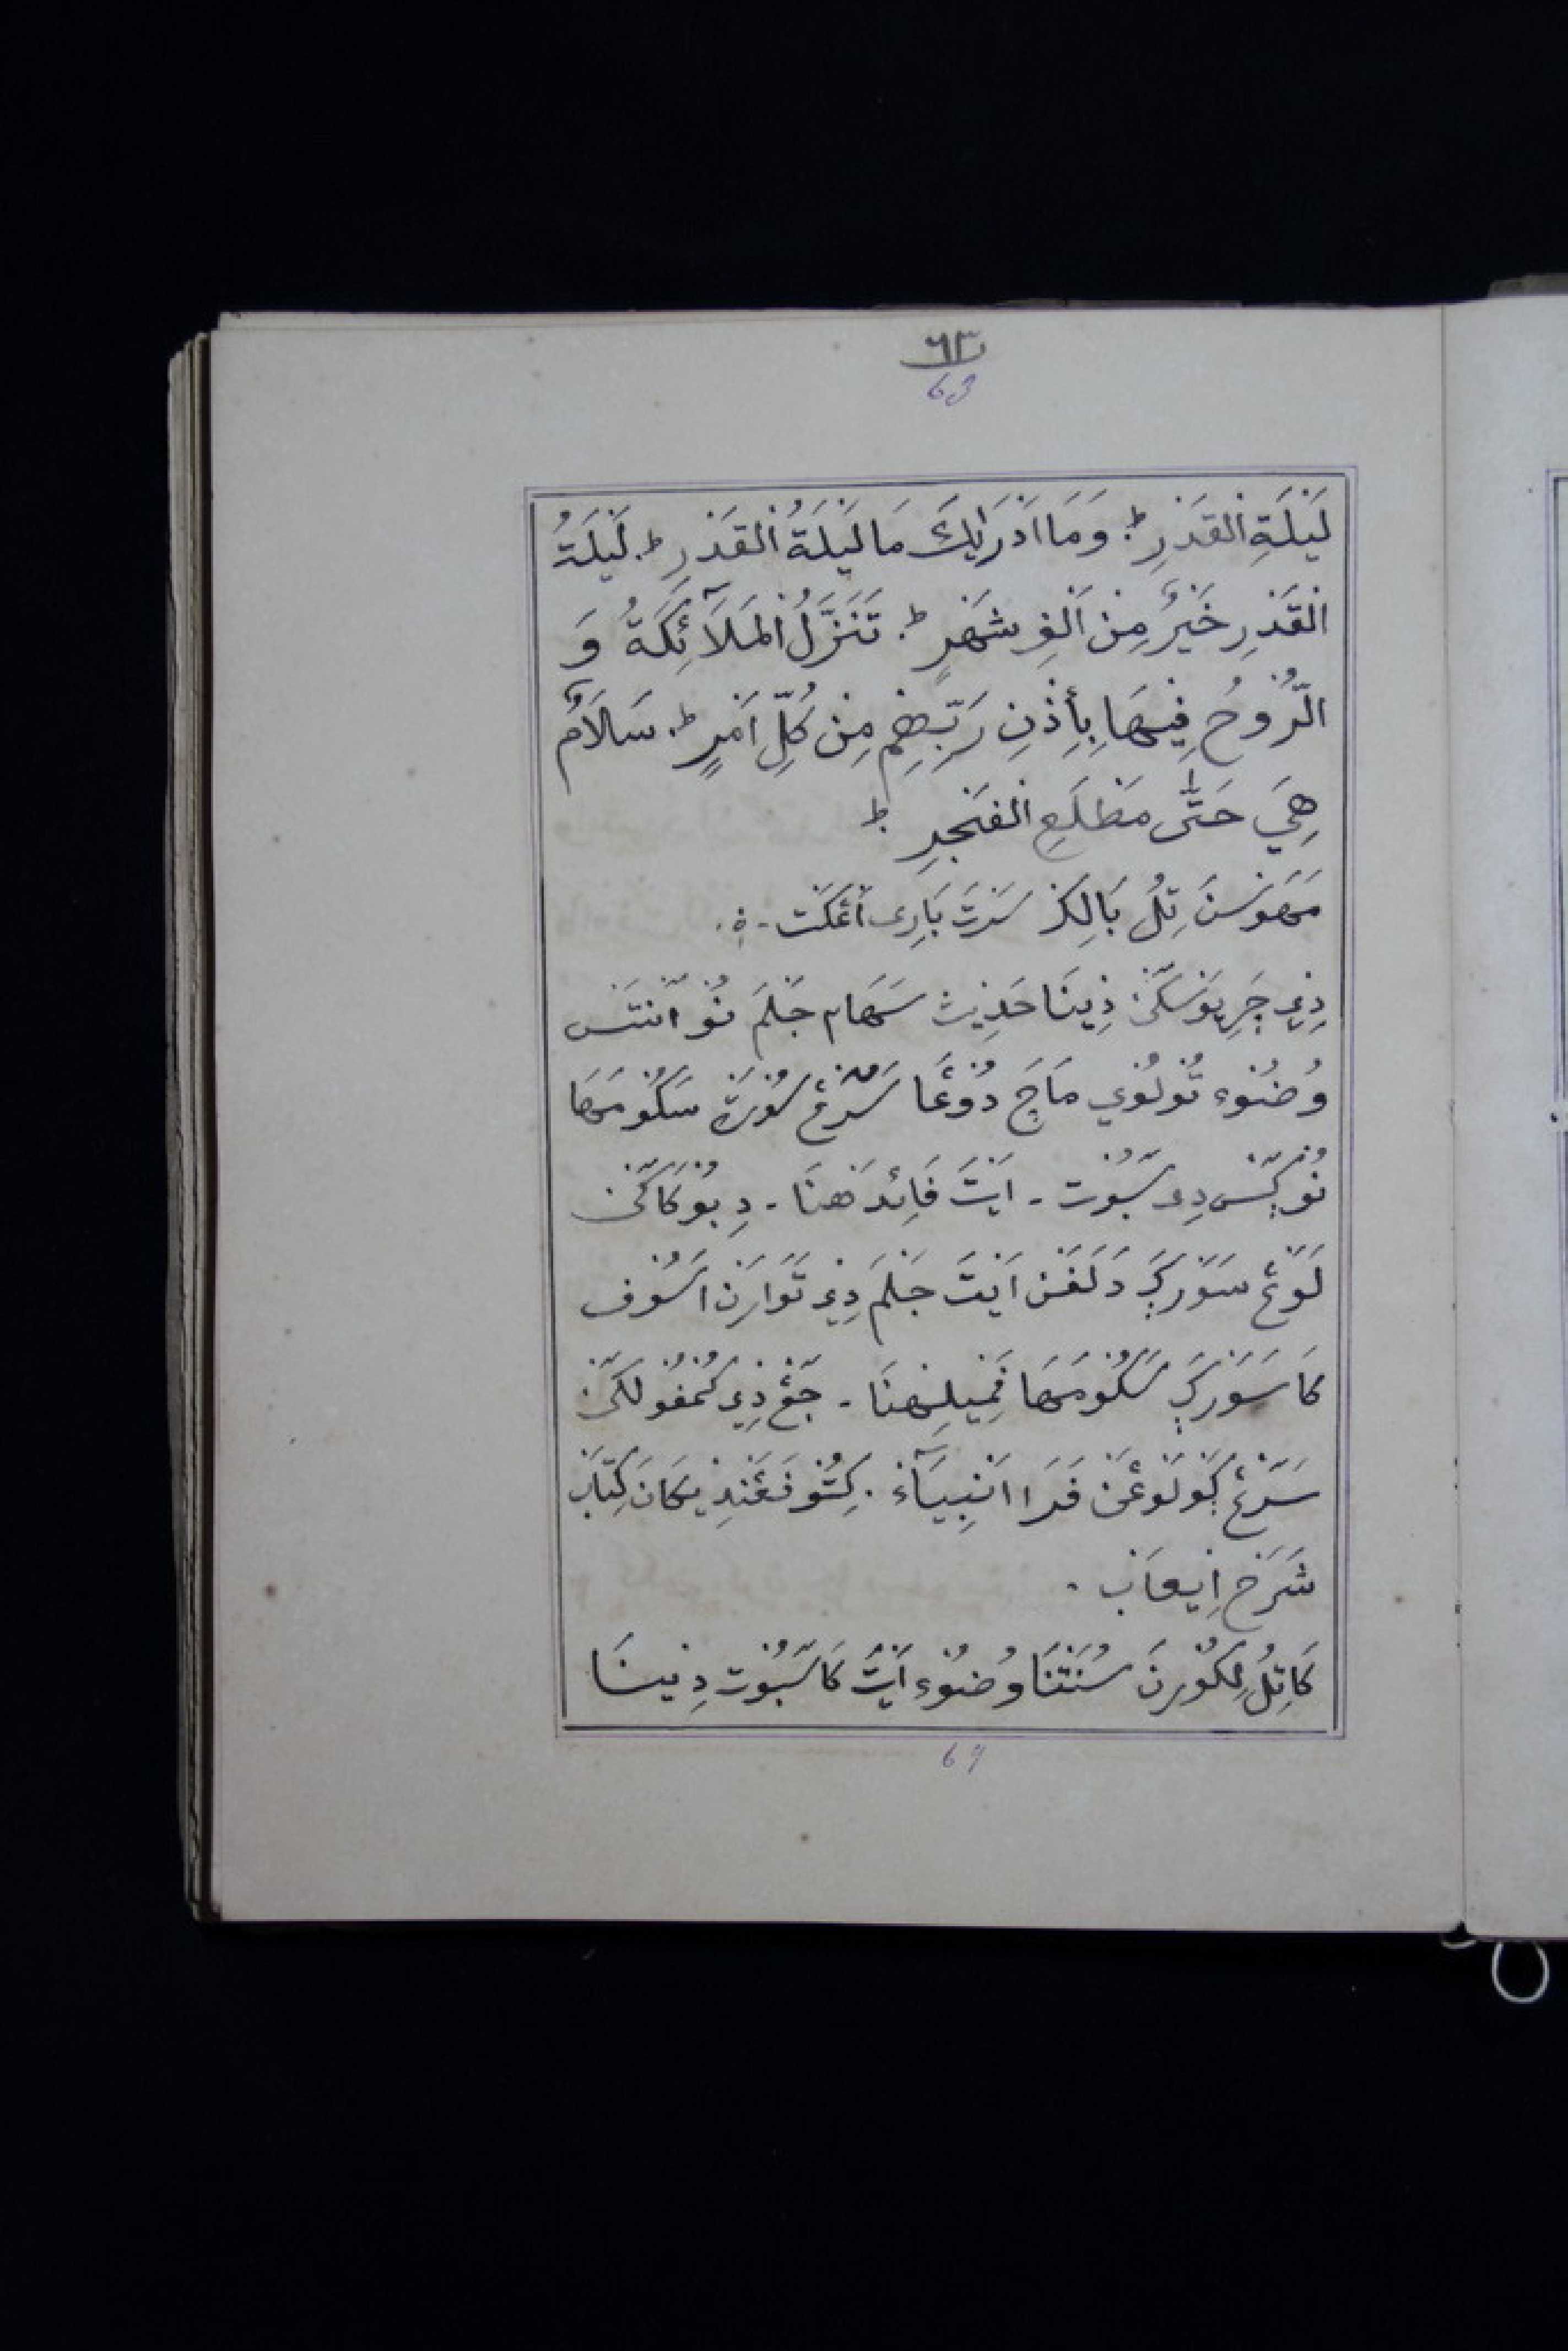 ٦٣
63
لَيْلَةِ الْقَدْرِ ؕ وَمَا اَدْرَايكَ مَا لَيْلَةُ الْقَدْرِ ؕ لَيْلَةُ
الْقَدْرِ خَيْرٌ مِنْ اَلْفِ شَهْرٍ ؕ تَنَزَّلُ الْمَلَآئِكَةُ وَ
الرُّوْحُ فِيْهَا بِأِذْنِ رَبِّهِمْ مِنْ كُلِّ اَمْرٍ ؕ سَالَامٌ
هِيَ حَتّٰى مَطْلَعِ الْفَجْرِ ؕ
مَهَوْسَنَ تِلُ بَالِكَرْ سَرْتَ بَارِى اَڠْكَتْ ـ ه .
دِيْ جَرِيوَسْكَنْ دِينَا حَدِيْث سَهَام جَلْمَ نُوْ اَنْتَسْ
وُضُوْء تُوْلُوْي مَاچَ دُوْعَا سَرْڠْ سُوْرَةْ سَكُوْمَهَا
نُوْ ݢَسْ دِى سَبُوْت ـ اَيْتَ فَائِدَهْنَا ـ دِ بُوْكَاكَنْ
لَوَڠْ سَوَرْݢَ دَلَفَنْ اَيْتَ جَلْمَ دِيْ تَوَارَنْ اَسُوْف
كَا سَوَرْݢَ سَكُوْمَهَا فَمِيلِهْنَا ـ جَڠْ دِيْ كُمْفُوْلكَنْ
سَرْڠْ ݢَوْلَوْڠَنْ فَرَا اَنْبِيَآءْ . كِتُوْ فَڠَنْدِيكَانَ كِتَابْ
شَرَحْ اِيعَانْ .
كَا تِلُ لِكُوْرنَ سُنَّتْنَا وُضُوْء اَيْتَ كَاسَبُوْت دِيْنَا